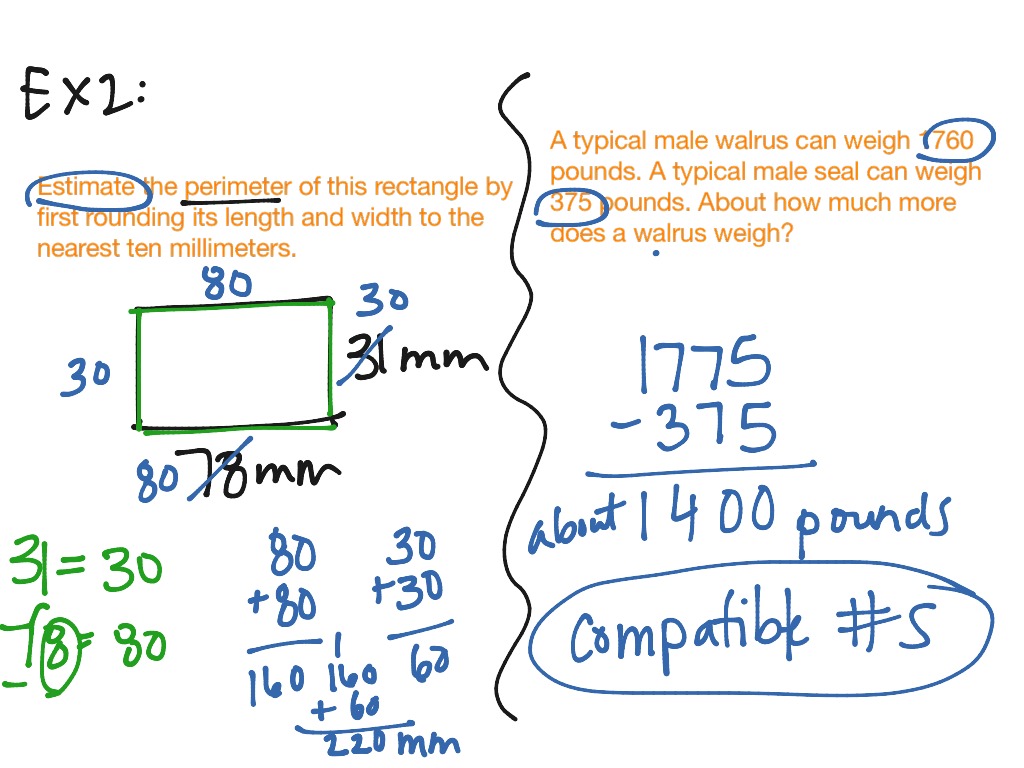 EX2:
Estimate the perimeter of this rectangle by
first rounding its length and width to the
nearest ten millimeters.
80
30
30
31 mm
80 78 mm
31 = 30
78 = 80
80
+80
160
30
+30
60
1
160
+ 60
220 mm
A typical male walrus can weigh 1760
pounds. A typical male seal can weigh
375 pounds. About how much more
does a walrus weigh?
1775
- 375
about 1400 pounds
Compatible #s